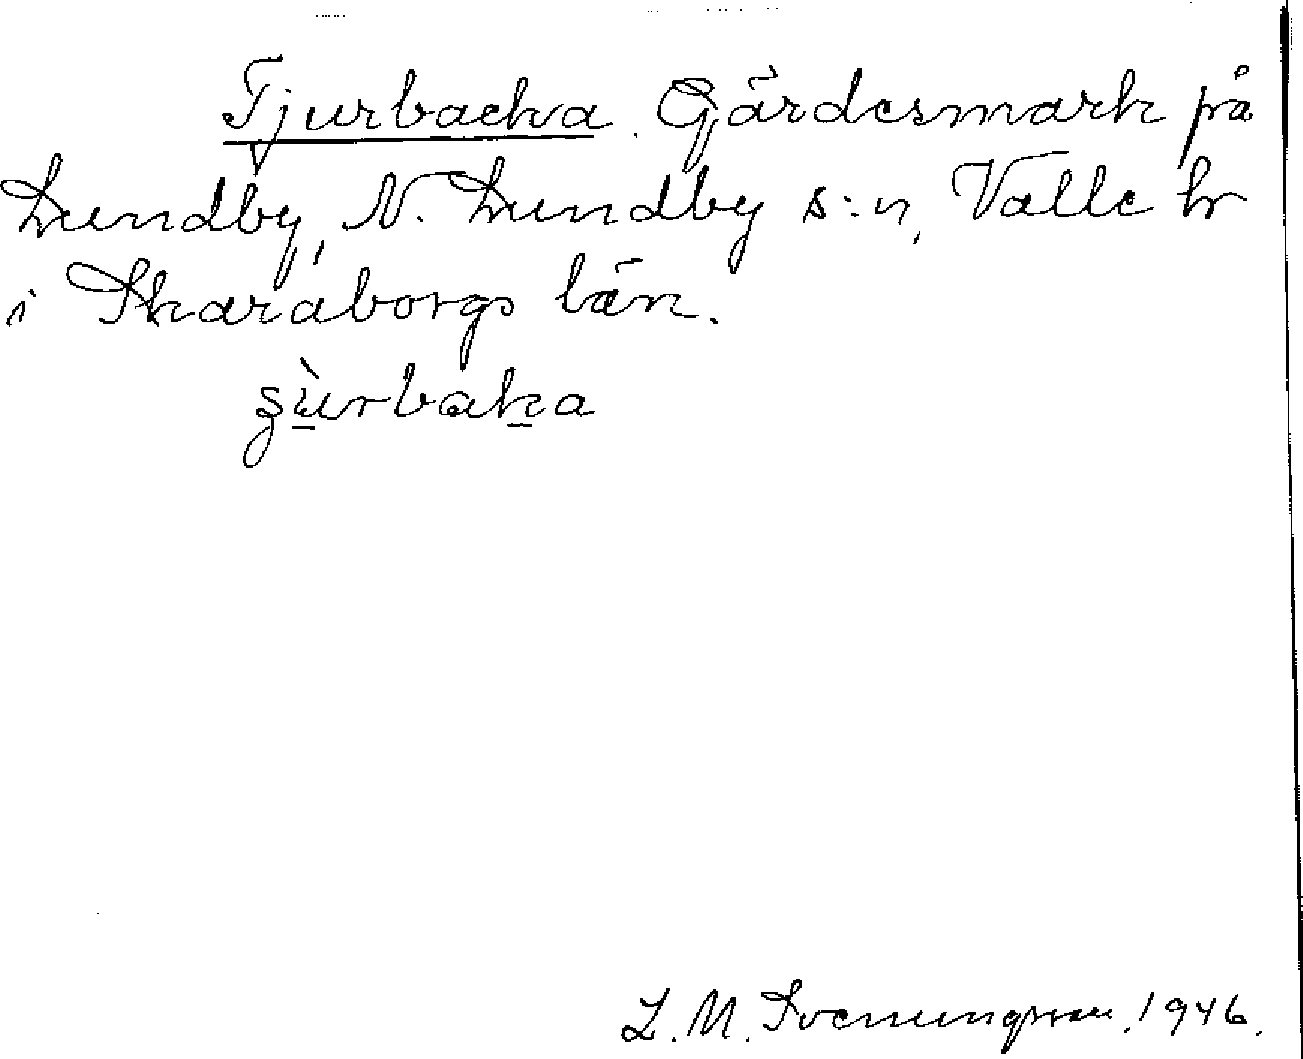 Tjurbacka. Gärdesmark på
Lundby, N. Lundby s:n, Valle hr
i Skaraborgs län.
ʂu̠̇̀rbak̠a
L. M. Svenungsson. 1946.